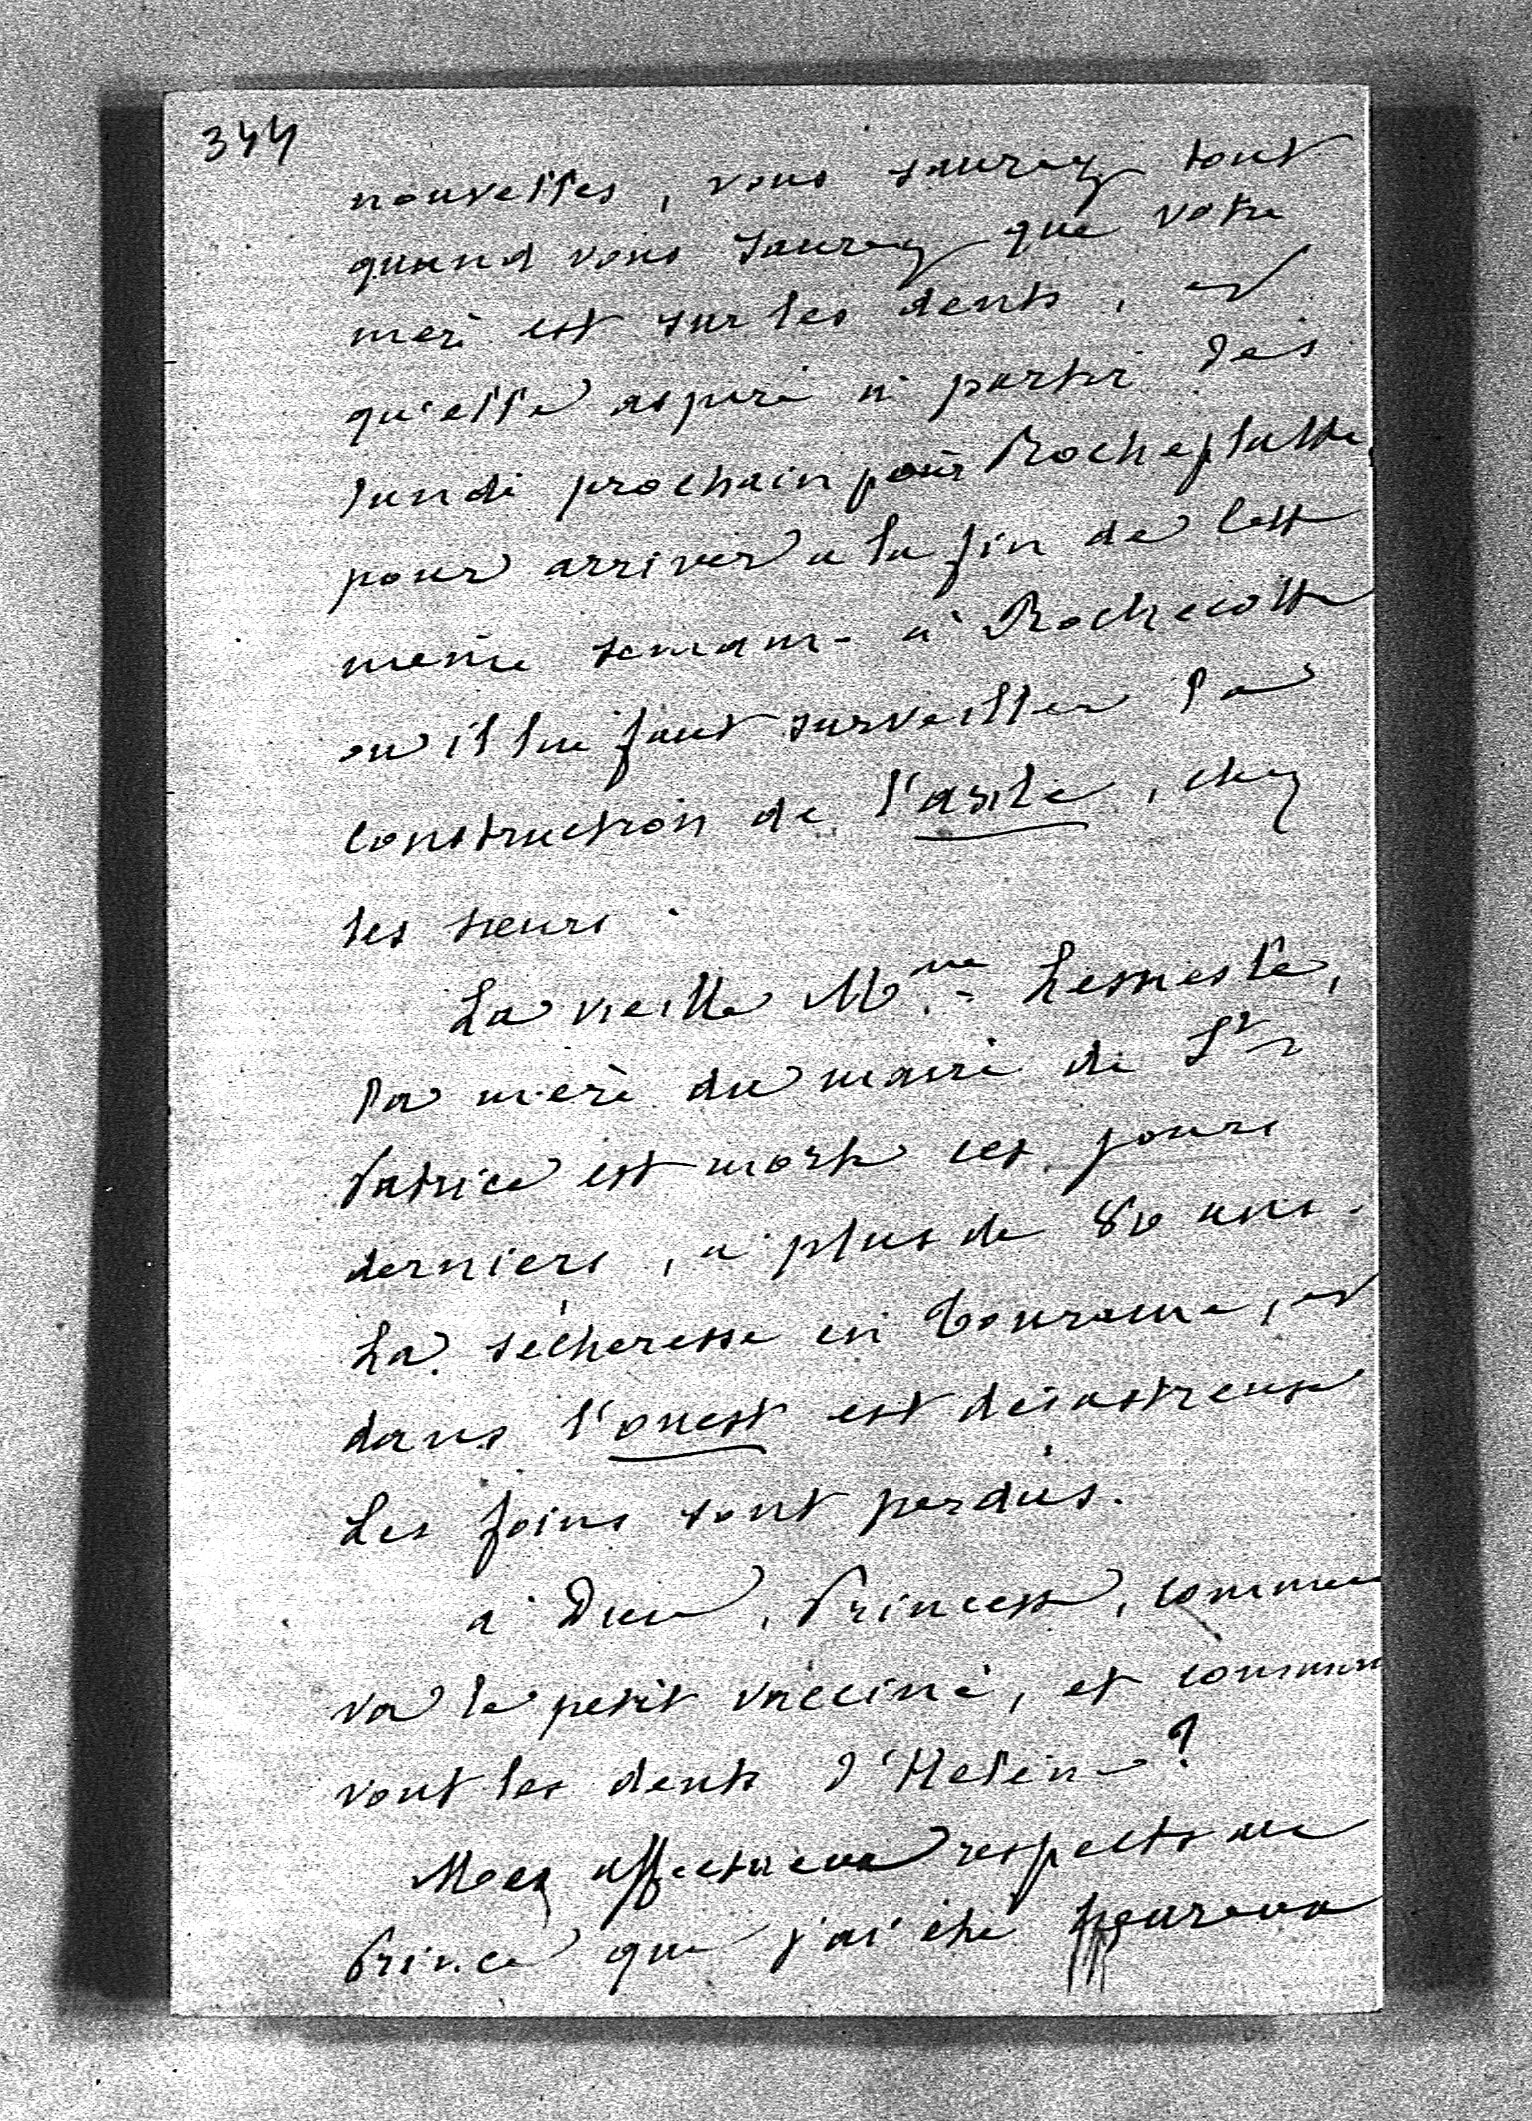 344
nouvelles, vous saurez tout
quand vous saurez que votre
mere est sur les dents, et
qu'elle aspire à partir dès
lundi prochain pour Rocheplatte,
pour arriver a la fin de cette
même semaine à Rochecotte
ou il lui faut surveiller la
construction de l'asile, chez
les sœurs.
La vieille Mme Lemesle,
la mere du maire de St
Patrice est morte ces jours
derniers, à plus de 80 ans.
La sécheresse en Touraine, et
dans l'ouest est désastreuse
Les foins sont perdus.
à Dieu, Princesse, comment
va le petit vacciné, et comment
vont les dents d'Helène?
Mes affectueux respects au
Prince que j'ai été heureux